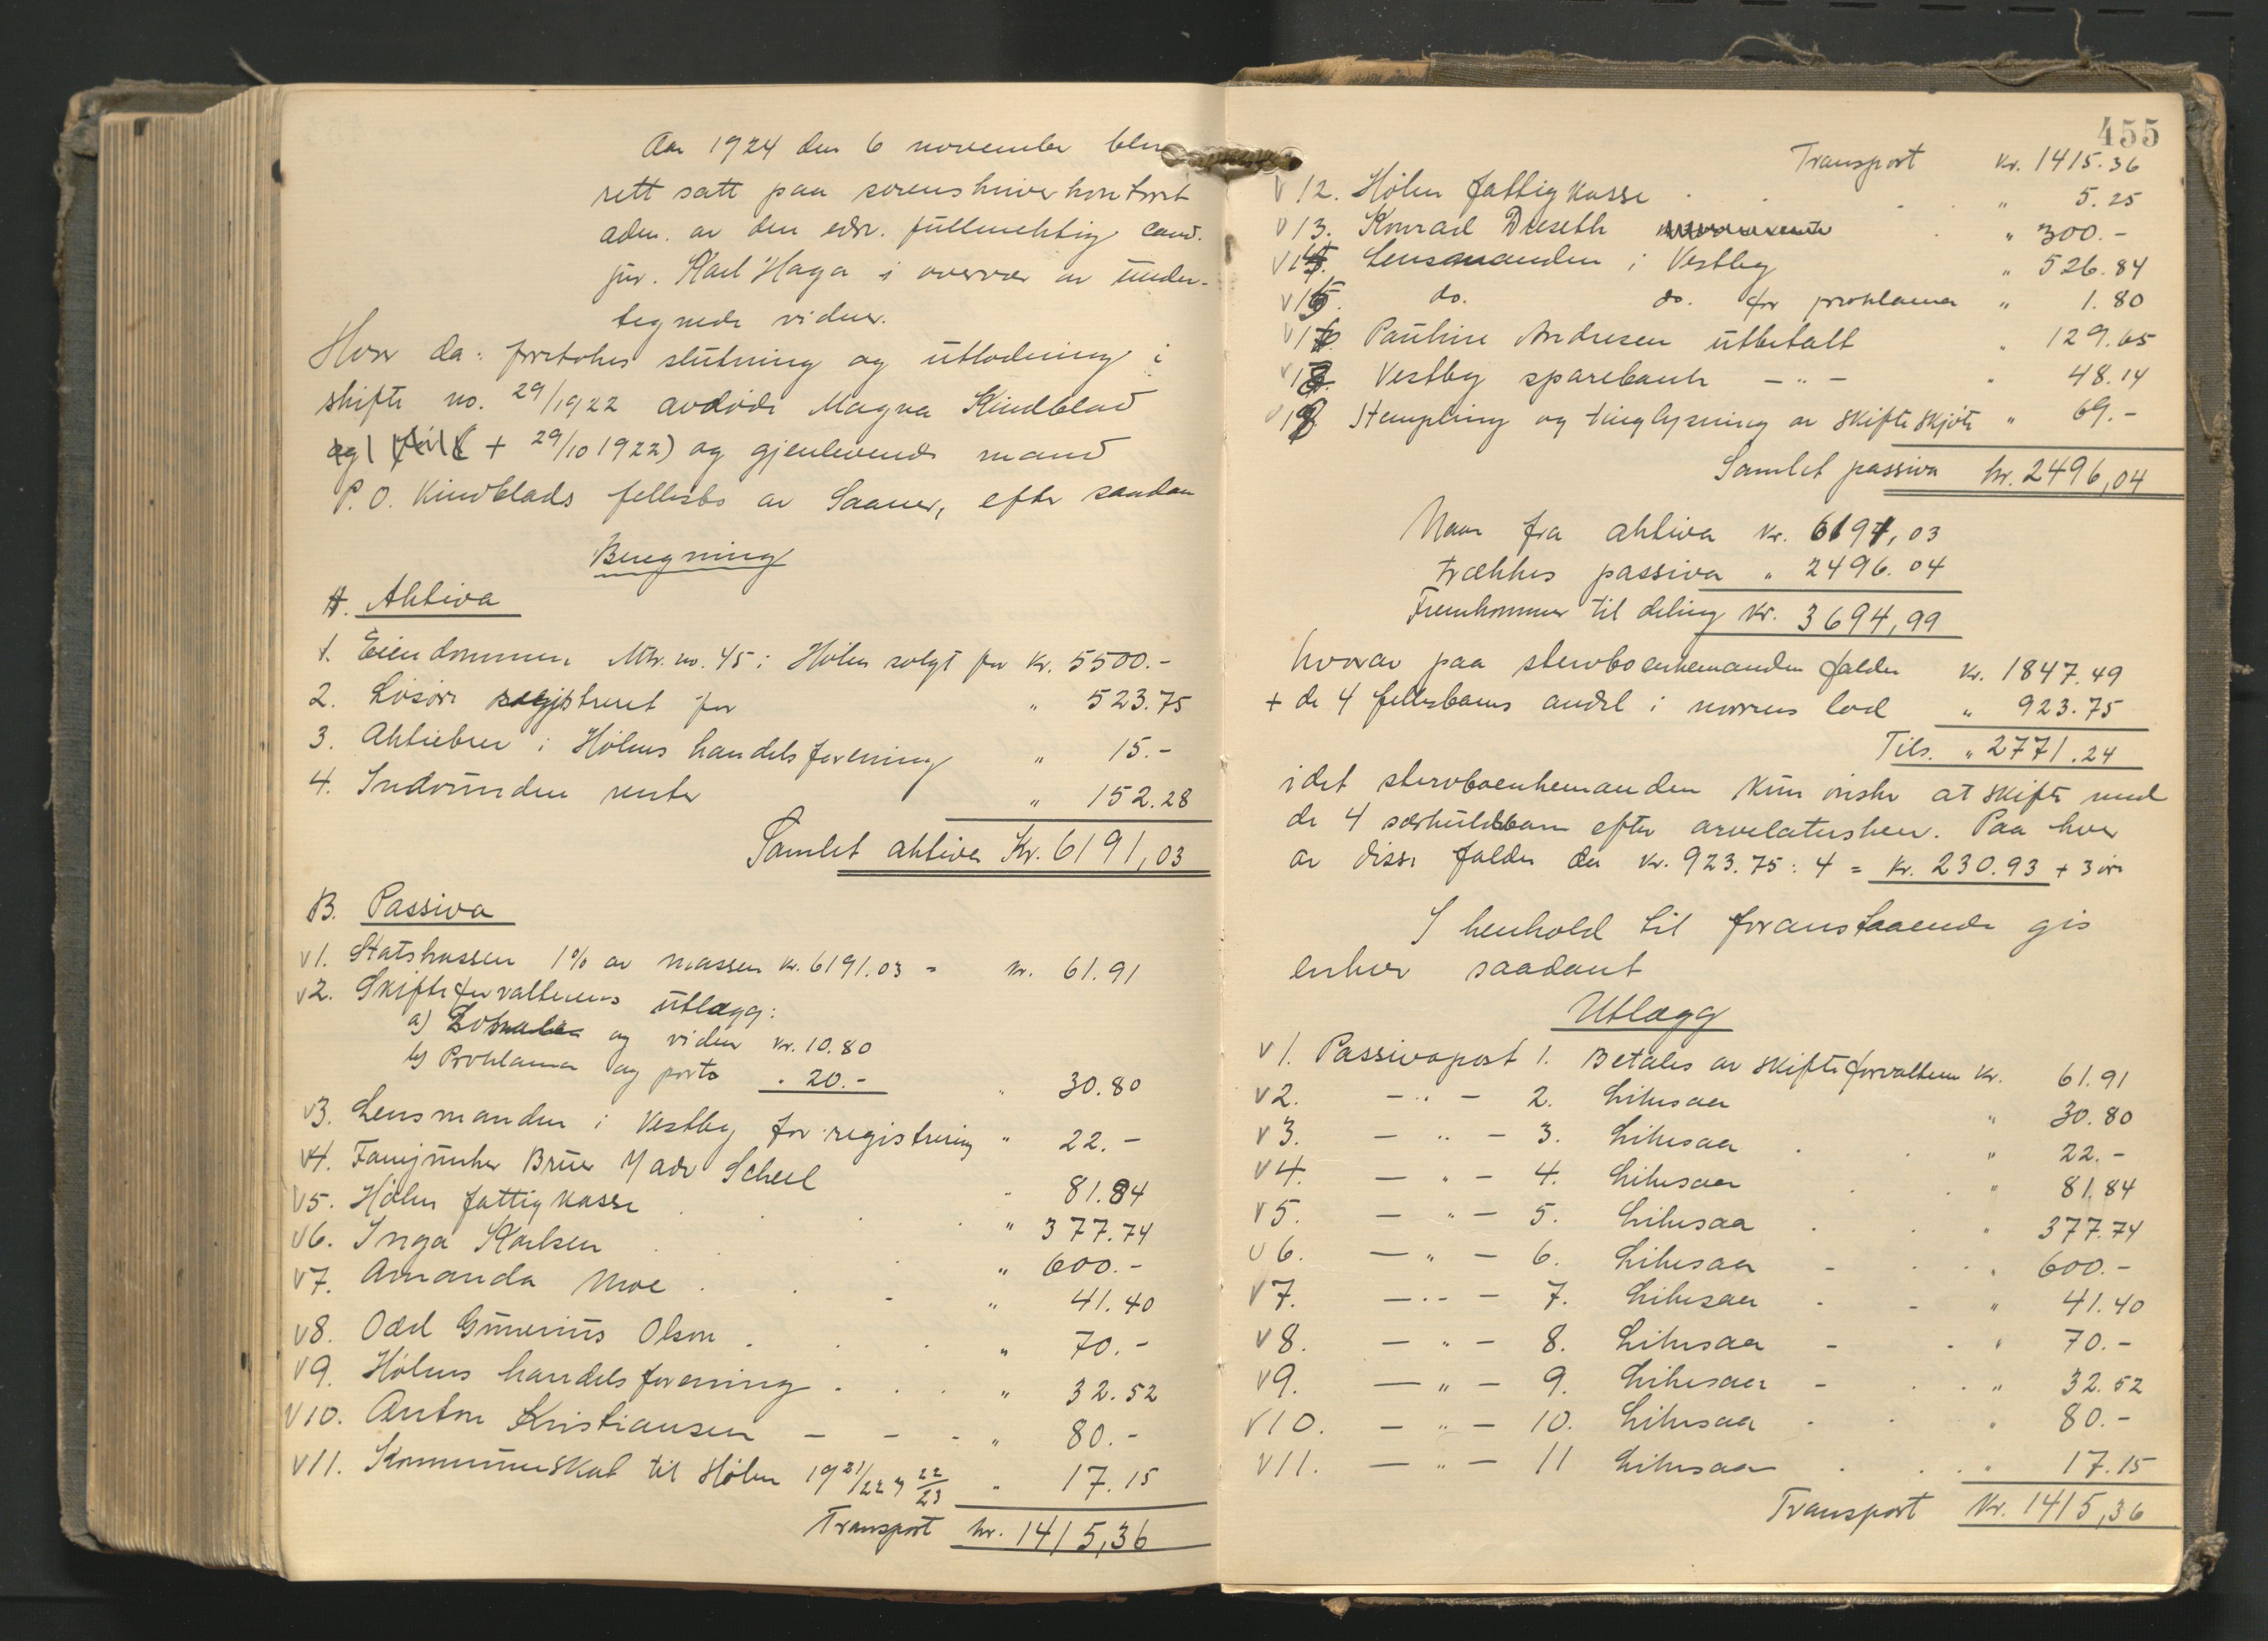 Aar 1924 den 6 november blev
rett satt paa sorenskriverkontoret
adm. av den edsv. fullmektig cand.
jur. Karl Haga i overvær av under-
tegnede vidner.
Hvor da: foretokes slutning og utlodning i
skifte no. 29/1922 avdøde Magna Kindblad
+ 29/10 1922) og gjenlevende mand
P. O. Kindblads fellesbo av Saaner, efter saadan
Beregning
A. Aktiva
1. Eiendommen Mtr. no. 45 i Hølen solgt for Kr. 5500.-
2. Løsøre registreret for " 523.75
3. Aktiebrev i Hølens handelsforening " 15.-
4. Indvundne renter " 152.28
Samlet aktiva Kr. 6191,03
B. Passiva
V1. Statskassen 1% av massen kr. 6191.03 = kr. 61.91
V2. Skifteforvalterens utlægg:
a) og vidner kr. 10.80
b) Proklama og porto " 20.- " 30.80
V3. Lensmanden i Vestby for registrering " 22.-
V4. Fanejunker Bruer Scheel " 81.84
V5. Hølen fattigkasse " 377.74
V6. Inga Karlsen " 600.-
V7. Amanda Moe " 41.40
V8. Odd Gunerius Olsen " 70.-
V9. Hølens handelsforening " 32.52
V10. Anton Kristiansen - - - " 80.-
V11. Kommuneskat til Hølen 1921/22 og 22/23 " 17.15
Transport kr. 1415,36
455
Transport Kr. 1415.36
V12. Hølen fattigkasse " 5.25
V13. Konrad Dieseth " 300.-
V14. Lensmanden i Vestby " 526.84
V15. do. do. for proklama " 1.80
V16 Pauline Andresen utbetalt " 129.65
V17. Vestby sparebank - " - " 48.14
V18 Stempling og tinglysning av skifteskjøte " 69.-
Samlet passiva kr. 2496,04
Naar fra aktiva kr. 6191,03
trækkes passiva " 2496.04
Fremkommer til deling kr. 3694,99
hvorav paa stervboenkemanden falder kr. 1847.49
+ de 4 fellesbarns andel i morens lod " 923.75
Tils. " 2771.24
idet stervboenkemanden kun ønsker at skifte med
de 4 særkuldsbarn efter arvelatersken. Paa hver
av disse falder der kr. 923.75 : 4 = kr. 230.93 + 3 øre
I henhold til foranstaaende gis
enhver saadant
Utlægg
V1. Passivapost 1. Betales av skifteforvalteren Kr. 61.91
V2. - " - 2. Likesaa " 30.80
V3. - " - 3. Likesaa " 22.-
V4. - " - 4. Likesaa " 81.84
V5. - " - 5. Likesaa " 377.74
V6. - " - 6. Likesaa " 600.-
V7. - " - 7. Likesaa " 41.40
V8. - " - 8. Likesaa " 70.-
V9. - " - 9. Likesaa " 32.52
V10. - " - 10. Likesaa " 80.-
V11. - " - 11 Likesaa " 17.15
Transport Kr. 1415,36